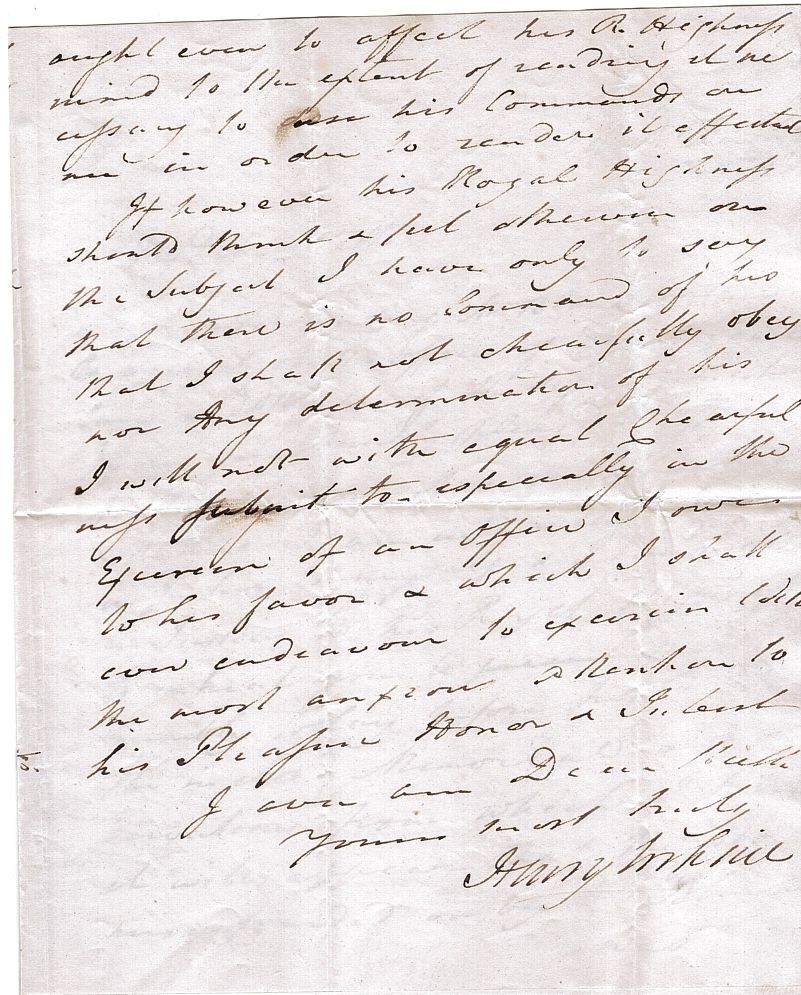 ought even to affect his R. Highness
mind to the extent of rendring it ne
cessary to use his Commands on
me in order to render it effectual
If however his Royal Highness
should think & feel otherwise on
the Subject I have only to say
that there is no Command of his
that I shall not chearfully obey
nor Any determination of his
I will not with equal Chearful
ness submit to especially in the
Exercise of an Office I owe
to his favor & which I shall
ever endeavour to exercise with
the most anxious attention to
his Pleasure Honor & Interest
I ever am Dear
Yours most truly
Henry Erskine